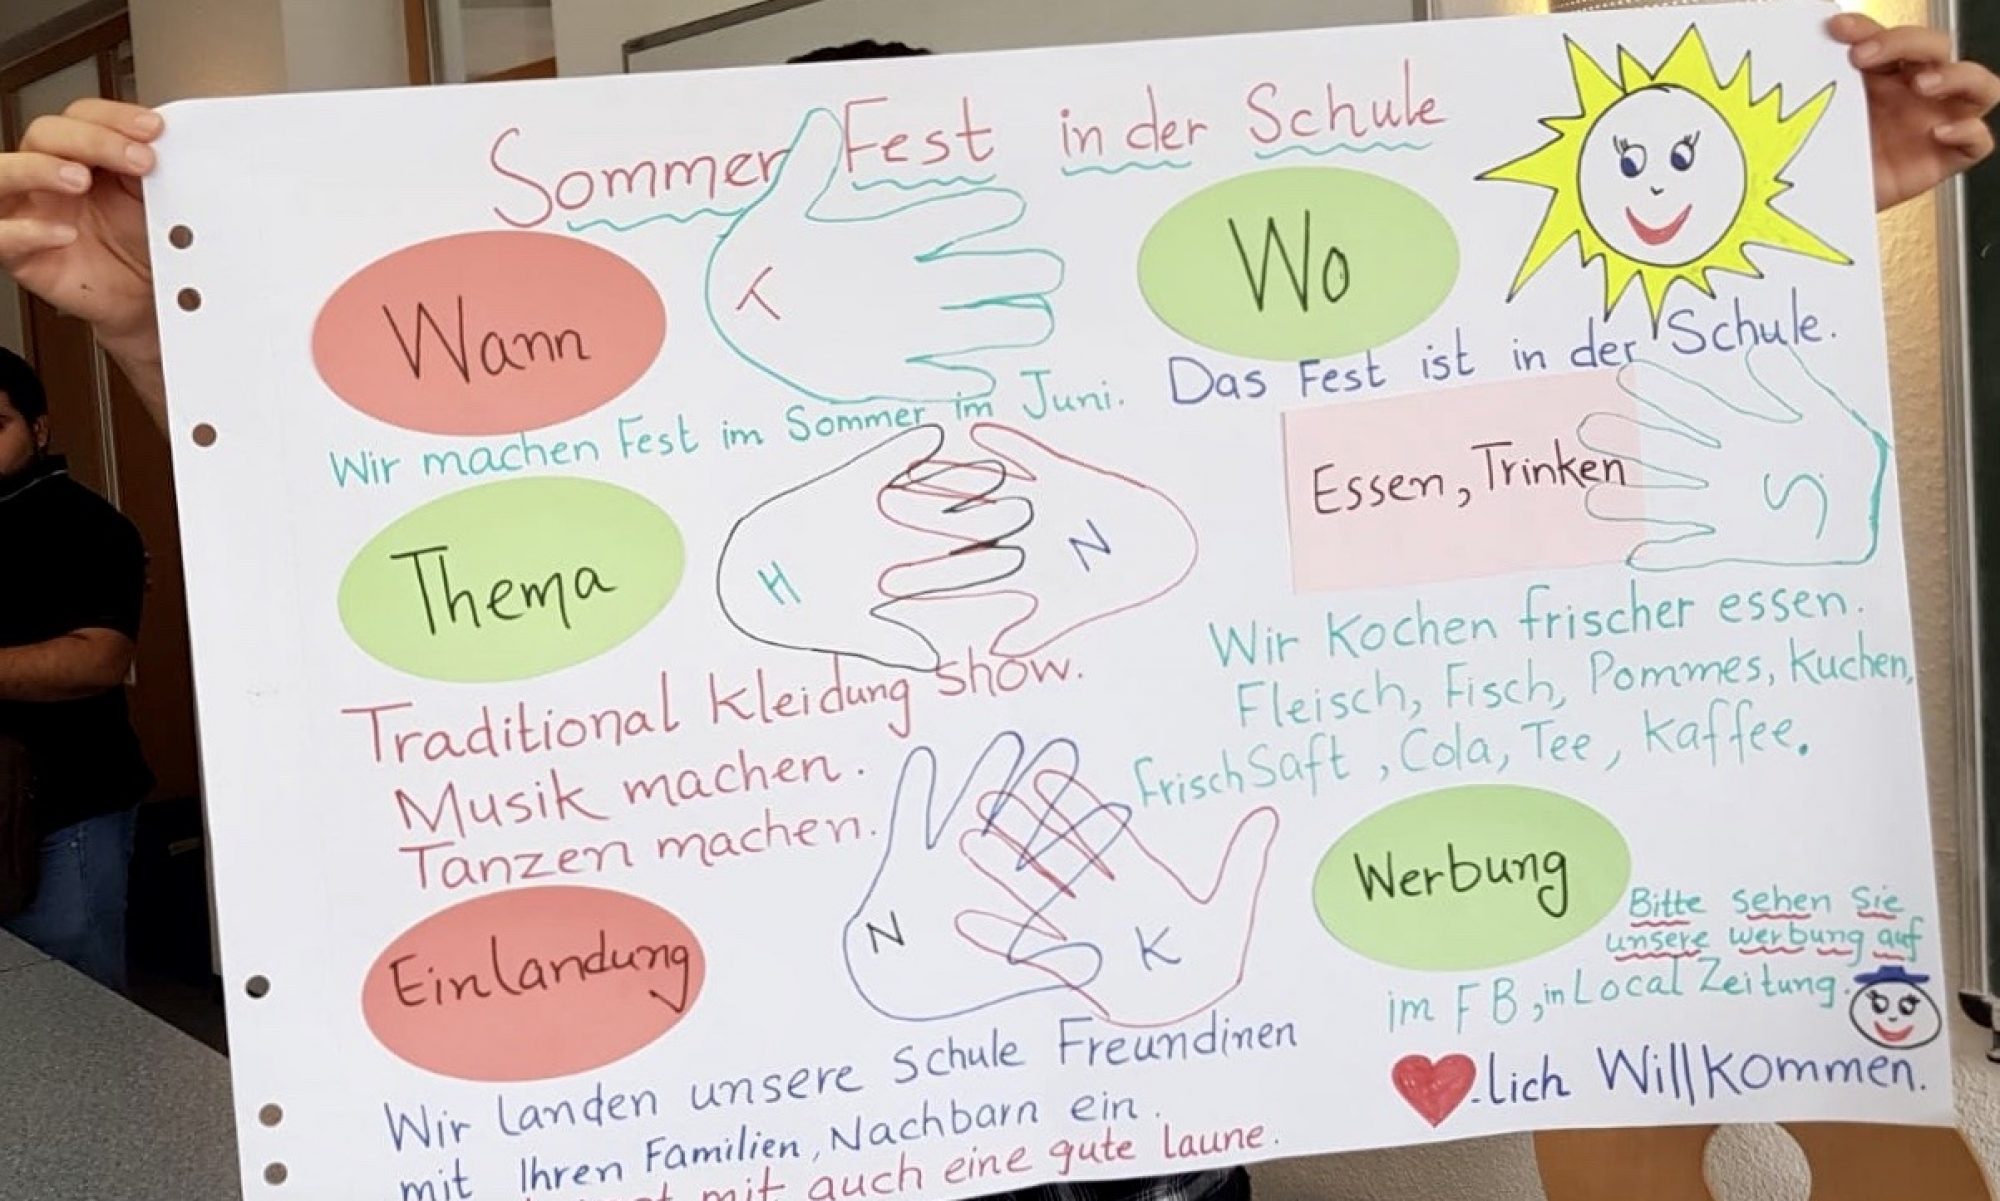 Sommer Fest in der Schule
Wann
T
Wir machen Fest im Sommer im Juni.
Wo
Das Fest ist in der Schule.
Thema
H
N
Traditional kleidung show.
Musik machen.
Tanzen machen.
Essen, Trinken
S
Wir kochen frischer essen.
Fleisch, Fisch, Pommes, Kuchen,
frischSaft, Cola, Tee, kaffee.
Einlandung
N
K
Wir landen unsere schule Freundinen
mit Ihren Familien, Nachbarn ein.
mit auch eine gute laune.
Werbung
Bitte sehen Sie
unsere werbung auf
im FB, in Local Zeitung.
.lich Willkommen.